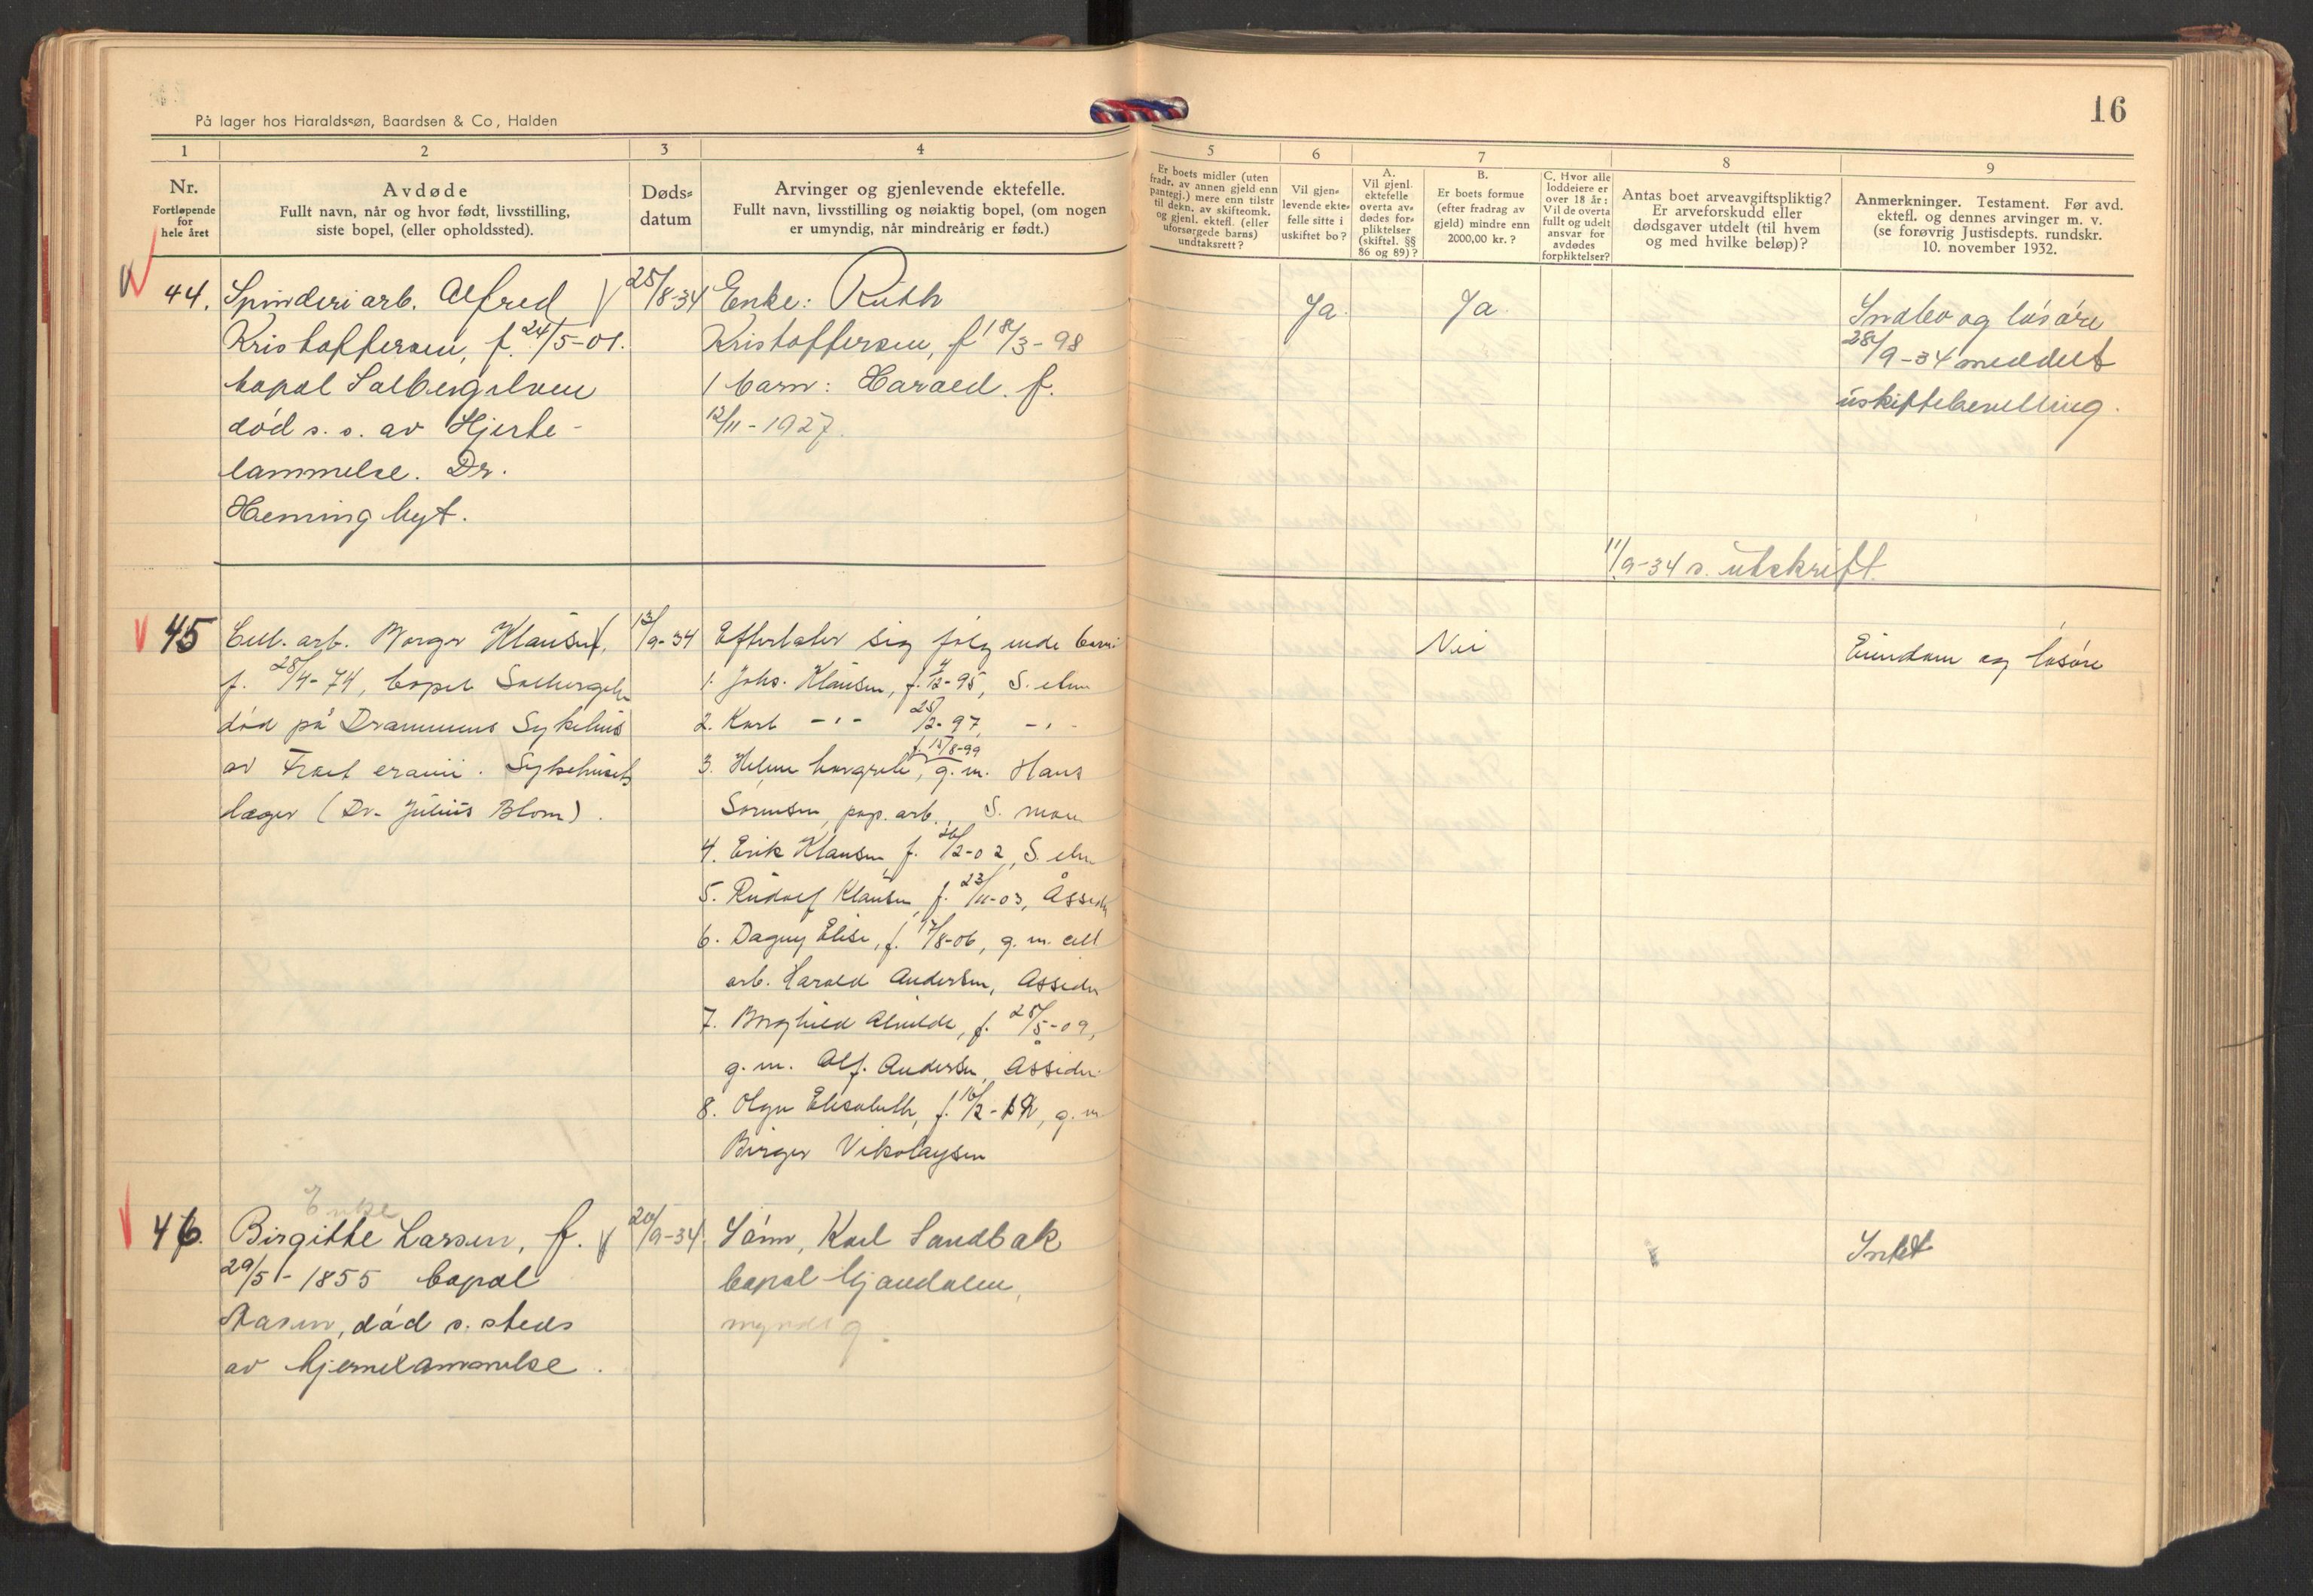 På lager hos Haraldssøn, Baardsen & Co, Halden
16
1 2 3 4 5 6 7 8 9
Nr.
Fortløpende
for
hele året
Avdøde
Fullt navn, når og hvor født, livsstilling,
siste bopel, (eller opholdssted).
Døds-
datum
Arvinger og gjenlevende ektefelle.
Fullt navn, livsstilling og nøiaktig bopel, (om nogen
er umyndig, når mindreårig er født.)
Er boets midler (uten
fradr. av annen gjeld enn
pantegj.) mere enn tilstr
til dekn. av skifteomk.
og gjenl. ektefl. (eller
uforsørgede barns)
undtaksrett?
Vil gjen-
levende ekte-
felle sitte i
uskiftet bo?
A.
Vil gjenl.
ektefelle
overta av-
dødes for-
pliktelser
(skiftel. §§
86 og 89)?
B.
Er boets formue
(efter fradrag av
gjeld) mindre enn
2000,00 kr.?
C. Hvor alle
loddeiere er
over 18 år:
Vil de overta
fullt og udelt
ansvar for
avdødes
forpliktelser?
Antas boet arveavgiftspliktig?
Er arveforskudd eller
dødsgaver utdelt (til hvem
og med hvilke beløp)?
Anmerkninger. Testament. Før avd.
ektefl. og dennes arvinger m. v.
(se forøvrig Justisdepts. rundskr.
10. november 1932.
44. Spinderiarb. Alfred
Kristoffersen, f. 24/5-01.
bopæl Solbergelven
død s. s. av Hjerte-
lammelse. Dr.
Henning Lyt.
25/8-34
Enke: Ruth
Kristoffersen, f 18/3-98
1 barn: Harald. f.
12/11-1927.
Ja.
Ja.
Indbo og løsøre
28/9-34 meddelt
uskiftebevilling.
11/9-34 s. utskrift
45 Cell. arb. Borger Klausen,
f. 28/4-74, bopel Solbergelv
død på Drammens Sykehus
av Sykehusets
læger (Dr. Julius Blom).
13/9-34
Efterlater sig følgende barn:
1. Johs. Klausen, f. 4/12-95, S. elven
2. Karl -"- 25/12-97, -"-
3. Helene Margrete, f. 15/8-99 g. m. Hans
Sørensen, pap. arb., S. moen
4. Erik Klausen, f. 26/2-02, S. elven
5. Rudolf Klausen, f. 23/11-03, Åssiden
6. Dagny Elise, f. 17/8-06, g. m. cell
arb. Harald Andersen, Åssiden
7. Borghild Alvilde, f. 25/5-09,
g. m. Alf. Andersen, Åssiden.
8. Olga Elisabeth, f. 16/2- g. m.
Birger Nikolaysen
Nei
Eiendom og løsøre
46. Enke
Birgitte Larsen, f.
29/5-1855 bopæl
Aasen, død s. steds
av hjernelammelse.
20/9-34
Sønn, Karl Sandbak
bopæl Mjøndalen,
myndig.
Intet